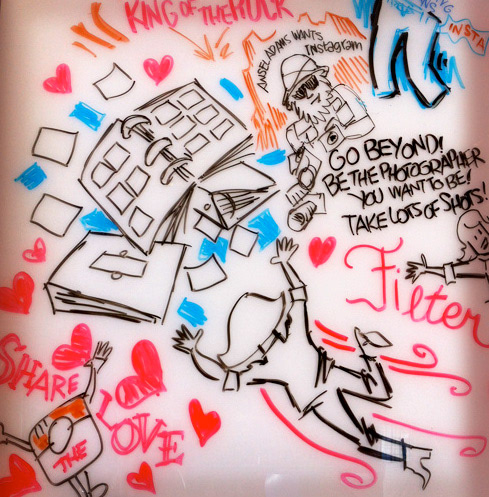 KING OF THE HUCK
ANSEL ADAMS WANTS
INSTAGRAM
INSTA
GO BEYOND!
BE THE PHOTOGRAPHER
YOU WANT TO BE!
TAKE LOTS OF SHOTS!
Filter
SHARE
THE
LOVE